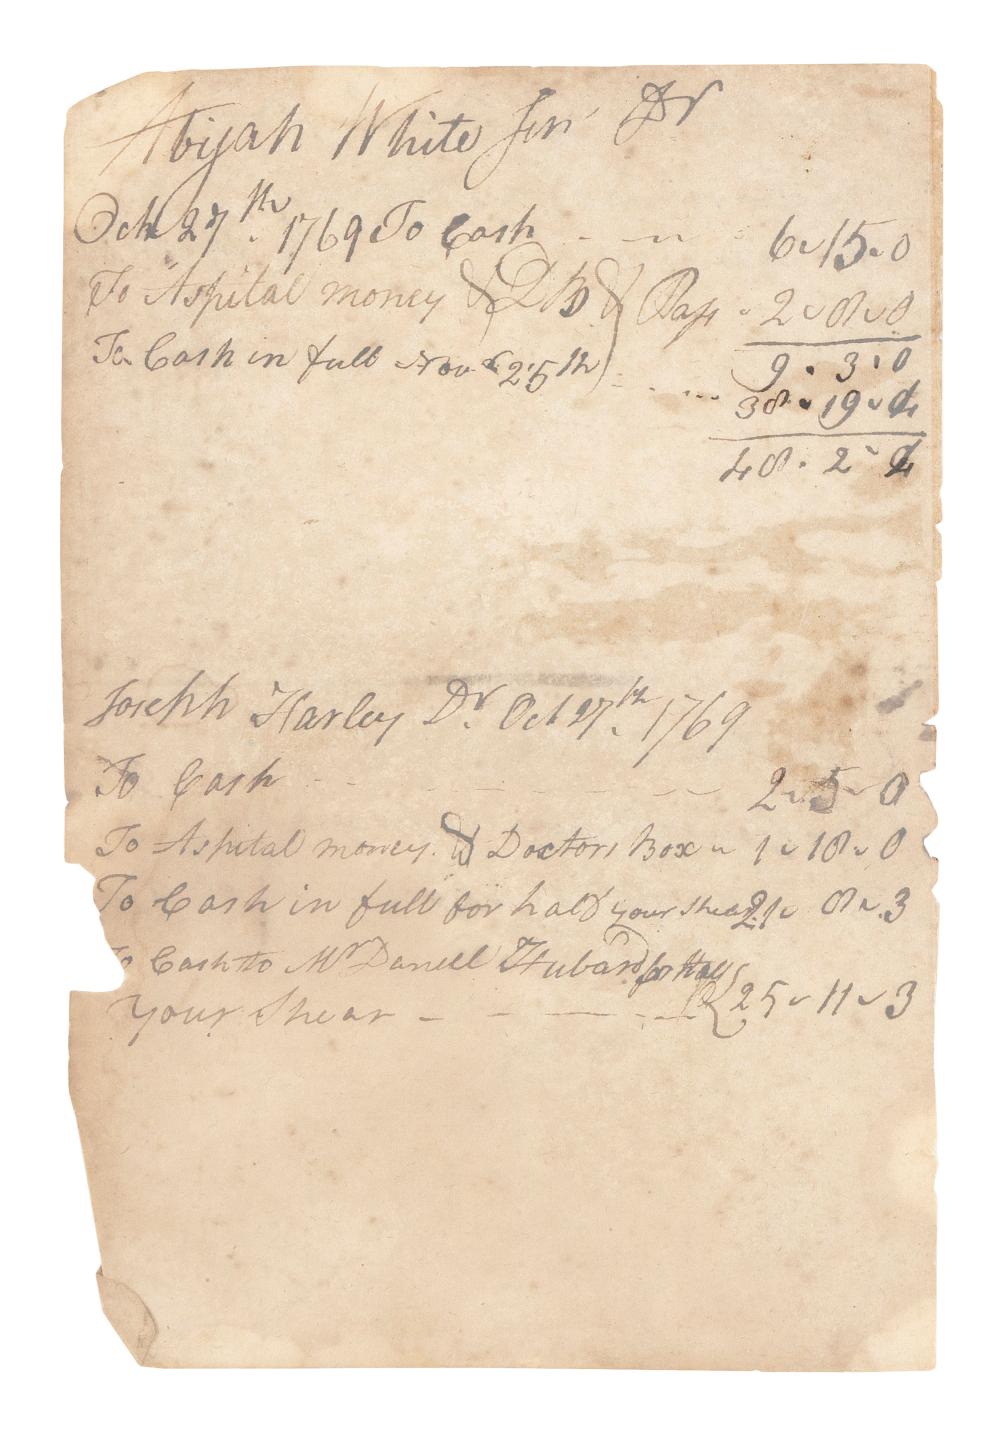 Abijah White Jun<sup>r</sup> Dr
Oct 27th. 1769 To Cash 6 - 15 - 0
To Aspital money & D B & Pass 2 - 8 - 0
9 . 3 . 0
To Cash in full Nov 25th 38 - 19 - 4
48 . 2 - 4
Joseph Harley Dr. Oct 27th. 1769
To Cash 2 - 5 - 0
To Aspital money & Doctors Box - 1 - 18 - 0
To Cash in full for half your Shear 21 - 8 - 3
To Cash to Mr Danell Hubard for Half
your Shear 25 - 11 - 3